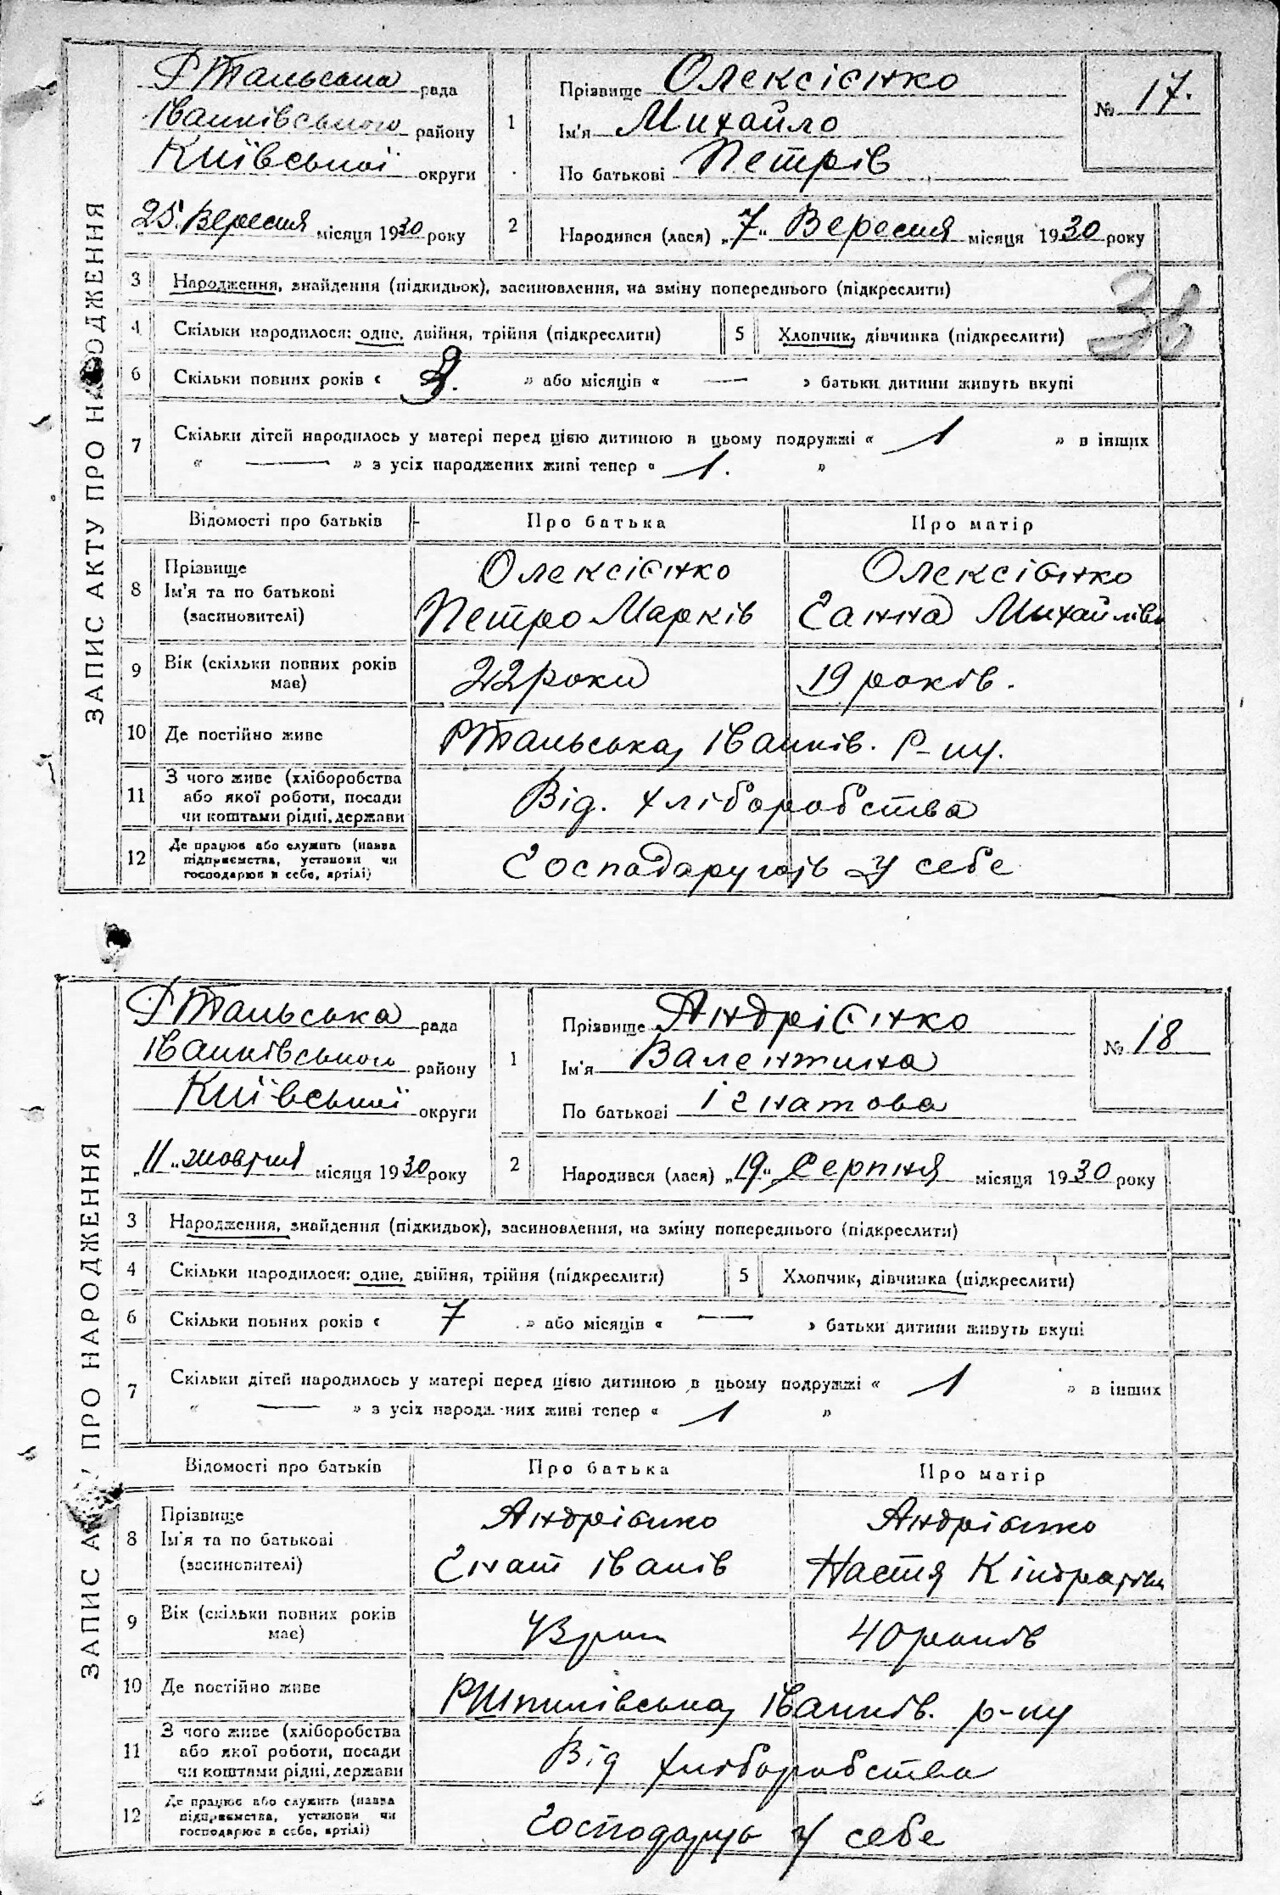 ЗАПИС АКТУ ПРО НАРОДЖЕННЯ
РТальська рада
Іванківського району
Київської округи
25. Вересня місяця 1930 року
1
Прізвище Олексієнко
Ім'я Михайло
По батькові Петрів
№ 17.
2
Народився (лася) „7“ Вересня місяця 1930 року
3
Народження, знайдення (підкидьок), засиновлення, на зміну попереднього (підкреслити)
4
Скільки народилося: одне, двійня, трійня (підкреслити)
5
Хлопчик, дівчинка (підкреслити)
6
Скільки повних років « » або місяців « — » батьки дитини живуть вкупі
7
Скільки дітей народилось у матері перед цією дитиною в цьому подружжі « 1 » в інших
« — » з усіх народжених живі тепер « 1. »
Відомості про батьків
Про батька
Про матір
8
Прізвище
Ім'я та по батькові
(засиновителі)
Олексієнко
Петро Марків
Олексієнко
Ганна Михайлівн
9
Вік (скільки повних років
має)
22 роки
19 років.
10
Де постійно живе
РТальська, Іванків. Р-ну.
11
З чого живе (хліборобства
або якої роботи, посади
чи коштами рідні, держави
Від. хліборобства
12
Де працює або служить (назва
підприємства, установи чи
господарює в себе, артілі)
Господарують у себе
ЗАПИС А ПРО НАРОДЖЕННЯ
РТальська рада
Іванківського району
Київської округи
„11“ жовтня місяця 1930 року
1
Прізвище Андрієнко
Ім'я Валентина
По батькові Ігнатова
№ 18
2
Народився (лася) „19“ Серпня місяця 1930 року
3
Народження, знайдення (підкидьок), засиновлення, на зміну попереднього (підкреслити)
4
Скільки народилося: одне, двійня, трійня (підкреслити)
5
Хлопчик, дівчинка (підкреслити)
6
Скільки повних років « 7 » або місяців « — » батьки дитини живуть вкупі
7
Скільки дітей народилось у матері перед цією дитиною в цьому подружжі « 1 » в інших
« — » з усіх народжених живі тепер « 1 »
Відомості про батьків
Про батька
Про матір
8
Прізвище
Ім'я та по батькові
(засиновителі)
Андрієнко
Гнат Іванів
Андрієнко
Настя Кіндратівн
9
Вік (скільки повних років
має)
43 рок
40 років
10
Де постійно живе
РШпилівська, Іванків. р-ну
11
З чого живе (хліборобства
або якої роботи, посади
чи коштами рідні, держави
Від хліборобства
12
Де працює або служить (назва
підприємства, установи чи
господарює в себе, артілі)
Господарує у себе